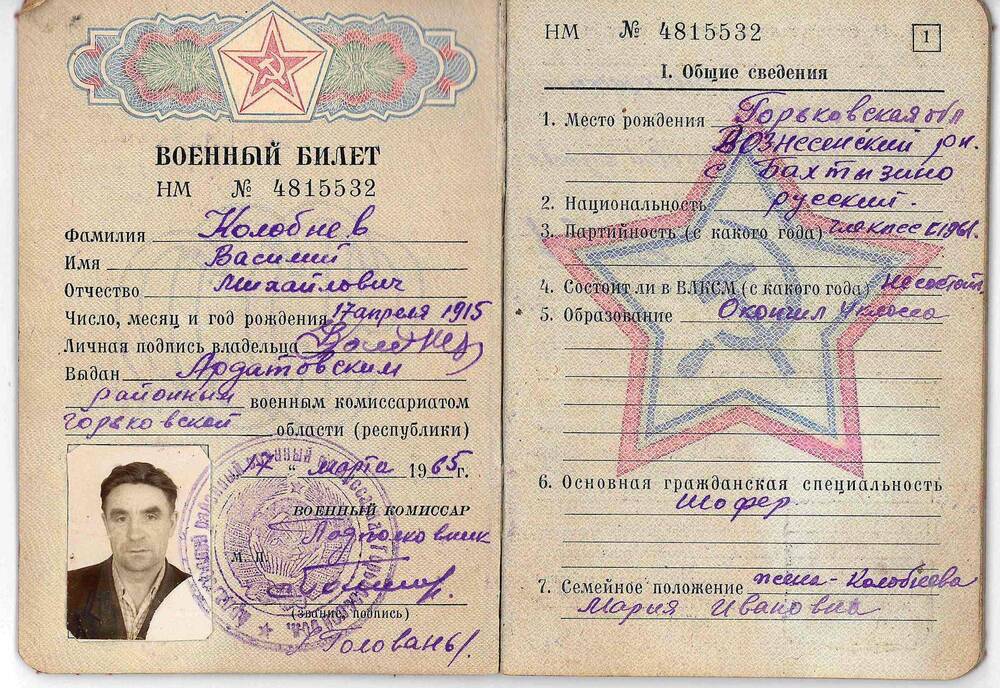 ВОЕННЫЙ БИЛЕТ
НМ № 4815532
Фамилия Колобнев
Имя Василий
Отчество Михайлович
Число, месяц и год рождения 17 апреля 1915
Личная подпись владельца
Выдан Ардатовским
районным военным комиссариатом
горьковской области (республики)
17 " марта 1965 г.
ВОЕННЫЙ КОМИССАР
Подполковник
М. П.
(звание, подпись)
НМ № 4815532
1
I. Общие сведения
1. Место рождения Горьковская обл
Вознесенский рн.
с Бахтызино
2. Национальность русский.
3. Партийность (с какого года) 1961.
4. Состоит ли в ВЛКСМ (с какого года) Не состоит
5. Образование Окончил 4 класса
6. Основная гражданская специальность
Шофер
7. Семейное положение жена - Колобнева
Мария Ивановна